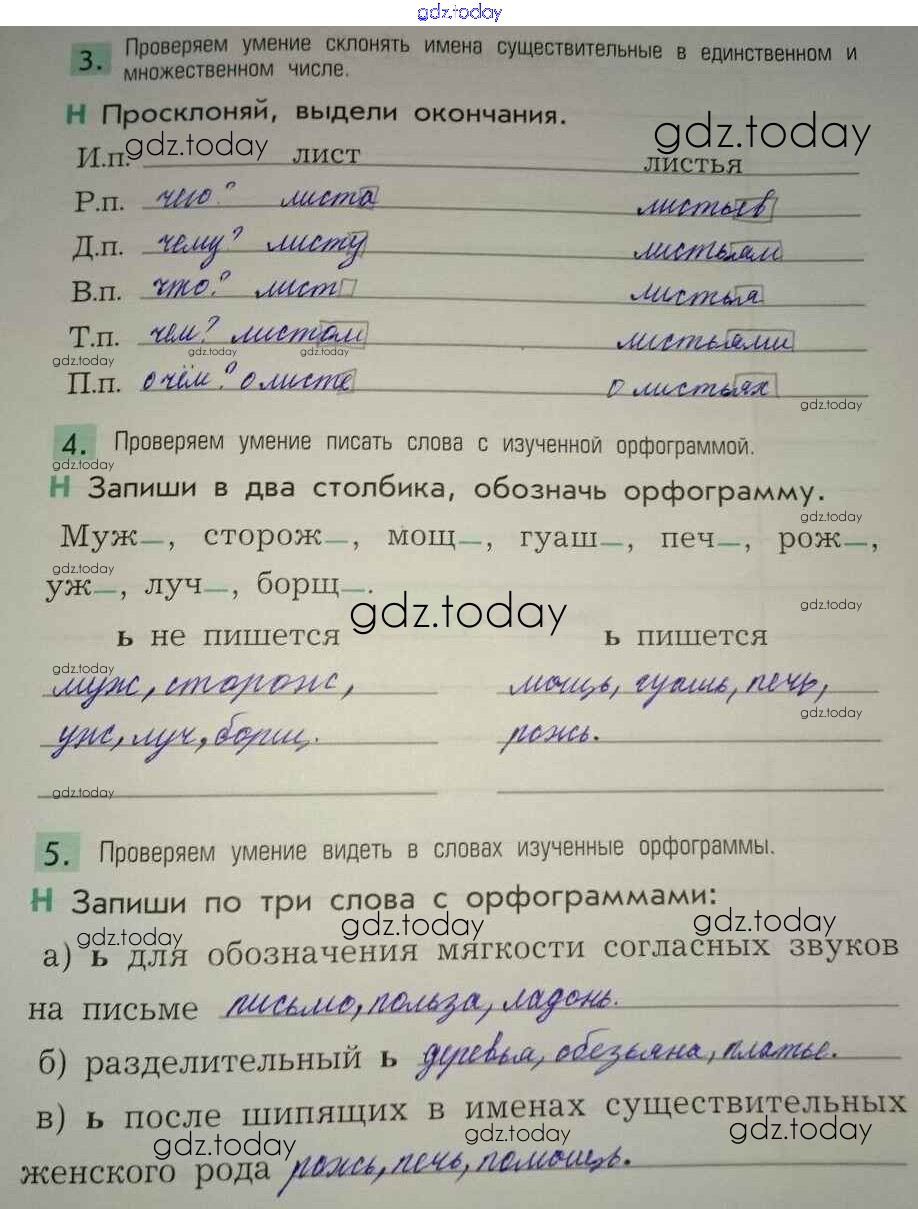 gdz.today
3. Проверяем умение склонять имена существительные в единственном и
множественном числе.
Н Просклоняй, выдели окончания.
gdz.today gdz.today
И.п. лист листья
Р.п. чего? листа листьев
Д.п. чему? листу листьям
В.п. что? лист листья
Т.п. чем? листом листьями
gdz.today gdz.today gdz.today
П.п. о чём? о листе о листьях
gdz.today
4. Проверяем умение писать слова с изученной орфограммой.
gdz.today
Н Запиши в два столбика, обозначь орфограмму.
gdz.today
Муж_, сторож_, мощ_, гуаш_, печ_, рож_,
gdz.today
уж_, луч_, борщ_.
gdz.today gdz.today
ь не пишется ь пишется
gdz.today
муж, сторож, мощь, гуашь, печь,
gdz.today
уж, луч, борщ. рожь.
gdz.today
5. Проверяем умение видеть в словах изученные орфограммы.
Н Запиши по три слова с орфограммами:
gdz.today gdz.today gdz.today
а) ь для обозначения мягкости согласных звуков
на письме письмо, польза, ладонь.
б) разделительный ь деревья, обезьяна, платье.
в) ь после шипящих в именах существительных
gdz.today gdz.today gdz.today
женского рода рожь, печь, помощь.